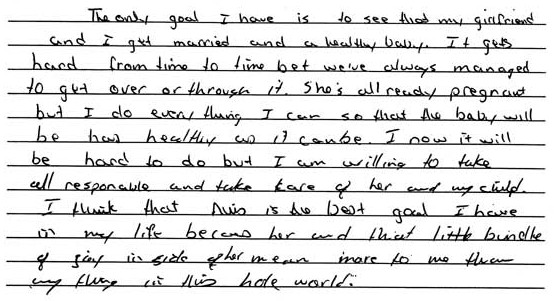 The only goal I have is to see that my girlfriend
and I get married and a healthy baby. It gets
hard from time to time bet we've always managed
to get over or through it. She's all ready pregnant
but I do every thing I can so that the baby will
be has healthy as it canbe. I now it will
be hard to do but I am willing to take
all responable and take kare of her and my child.
I think that this is the best goal I have
in my life becaus her and that little bundle
of joy in side of her mean more to me than
any thing in this hole world.